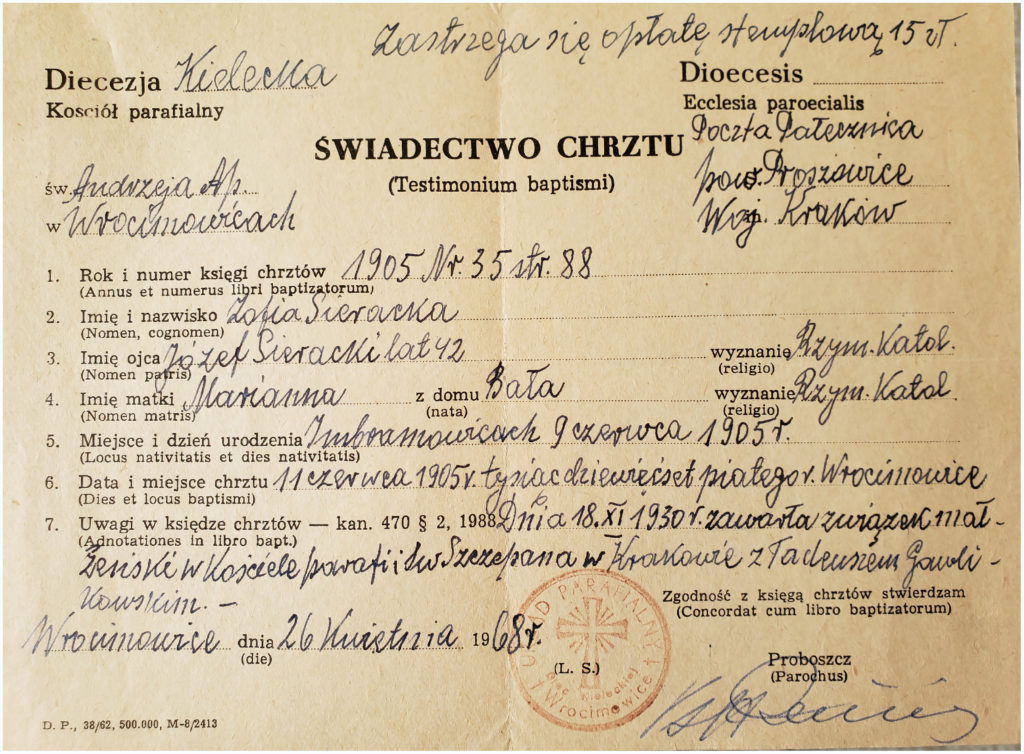 Zastrzega się opłatę stemplową 15 zł.
Diecezja Kielecka
Dioecesis
Kościół parafialny
Ecclesia paroecialis
Poczta Pałecznica
ŚWIADECTWO CHRZTU
(Testimonium baptismi)
św. Andrzeja Ap.
pow. Proszowice
w Wrocimowicach
Woj. Kraków
1. Rok i numer księgi chrztów 1905 Nr. 35 str. 88
(Annus et numerus libri baptizatorum)
2. Imię i nazwisko Zofia Sieracka
(Nomen, cognomen)
3. Imię ojca Józef Sieracki lat 42 wyznanie Rzym. Katol.
(Nomen patris) (religio)
4. Imię matki Marianna z domu Bała wyznanie Rzym. Katol
(Nomen matris) (nata) (religio)
5. Miejsce i dzień urodzenia Imbramowicach 9 czerwca 1905 r.
(Locus nativitatis et dies nativitatis)
6. Data i miejsce chrztu 11 czerwca 1905 r. tysiąc dziewięćset piątego r. Wrocimowice
(Dies et locus baptismi)
7. Uwagi w księdze chrztów — kan. 470 § 2, 1988 Dnia 18. XI 1930 r. zawarła związek mał-
(Adnotationes in libro bapt.)
żeński w Kościele parafii Św Szczepana w Krakowie z Tadeuszem Gawli-
kowskim. —
Zgodność z księgą chrztów stwierdzam
(Concordat cum libro baptizatorum)
Wrocimowice dnia 26 Kwietnia 1968 r.
(die)
(L. S.)
Proboszcz
(Parochus)
URZĄD PARAFIALNY
Diec. Kieleckiej
Wrocimowice
D. P., 38/62, 500.000, M-8/2413